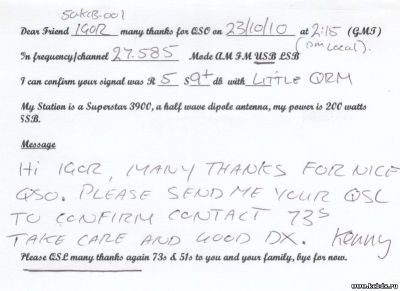 50KCB.001
Dear Friend IGOR many thanks for QSO on 23/10/10 at 2:15 (GMT)
(pm Local).
In frequency/channel 27.585 Mode AM FM USB LSB
I can confirm your signal was R 5 S9+ db with LITTLE QRM
My Station is a Superstar 3900, a half wave dipole antenna, my power is 200 watts
SSB.
Message
HI IGOR, MANY THANKS FOR NICE
QSO. PLEASE SEND ME YOUR QSL
TO CONFIRM CONTACT 73s
TAKE CARE AND GOOD DX. Kenny
Please QSL many thanks again 73s & 51s to you and your family, bye for now.